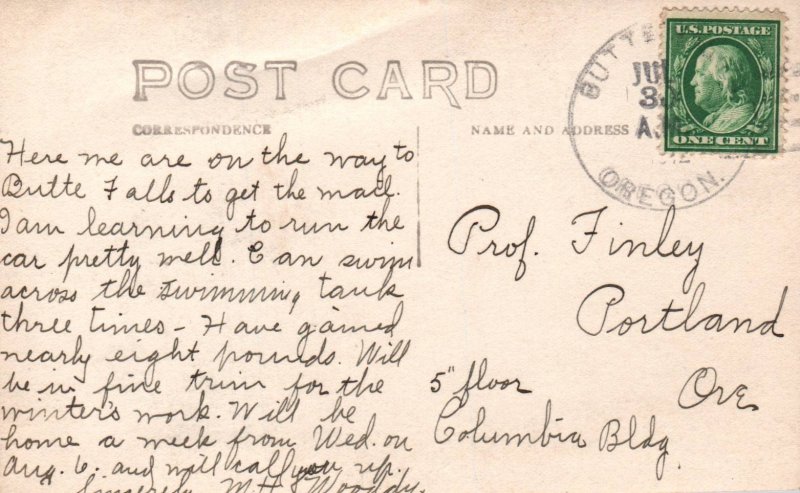 POST CARD
CORRESPONDENCE
NAME AND ADDRESS
BUTTE
JU
3
A
1912
OREGON.
U.S. POSTAGE
ONE CENT
Here we are on the way to
Butte Falls to get the mail.
I am learning to run the
car pretty well. Can swim
across the swimming tank
three times - Have gained
nearly eight pounds. Will
be in fine trim for the
winter's work. Will be
home a week from Wed. on
Aug. 6. and will call you up.
Sincerely M.H.
Prof. Finley
Portland
Ore.
5" floor
Columbia Bldg.